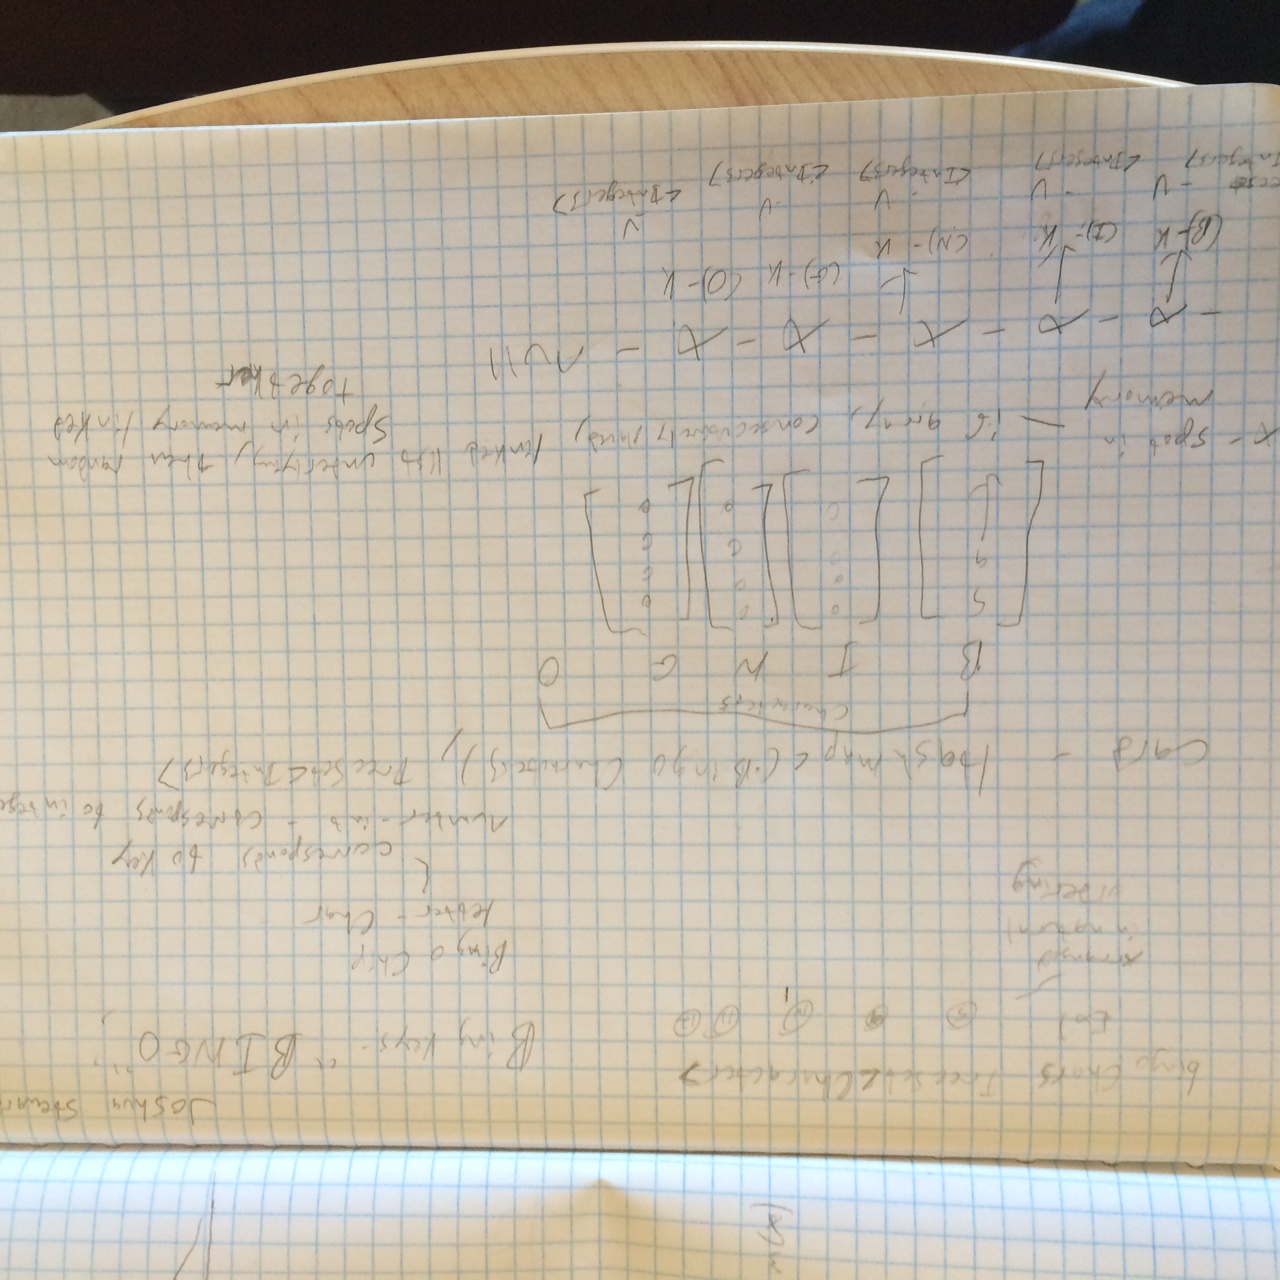 Joshua
bingo Chars TreeSet<Characters>
Bing Keys - "BINGO",
Bingo Chip
letter - Char
corresponds to key
number - int - corresponds to
arranged
in natural
ordering
Card - Hashmap<(Bingo Characters), TreeSet<Integers>
Characters
B I N G O
X - Spot in memory — if array, consecutively, linked list underlying, then random
Spots in memory linked
together
- X - X - X - X - X - null
(B)-K (I)-K (N)-K (G)-K (O)-K
V V V V V
Integers> <Integers> <Integers> <Integers> <Integers>